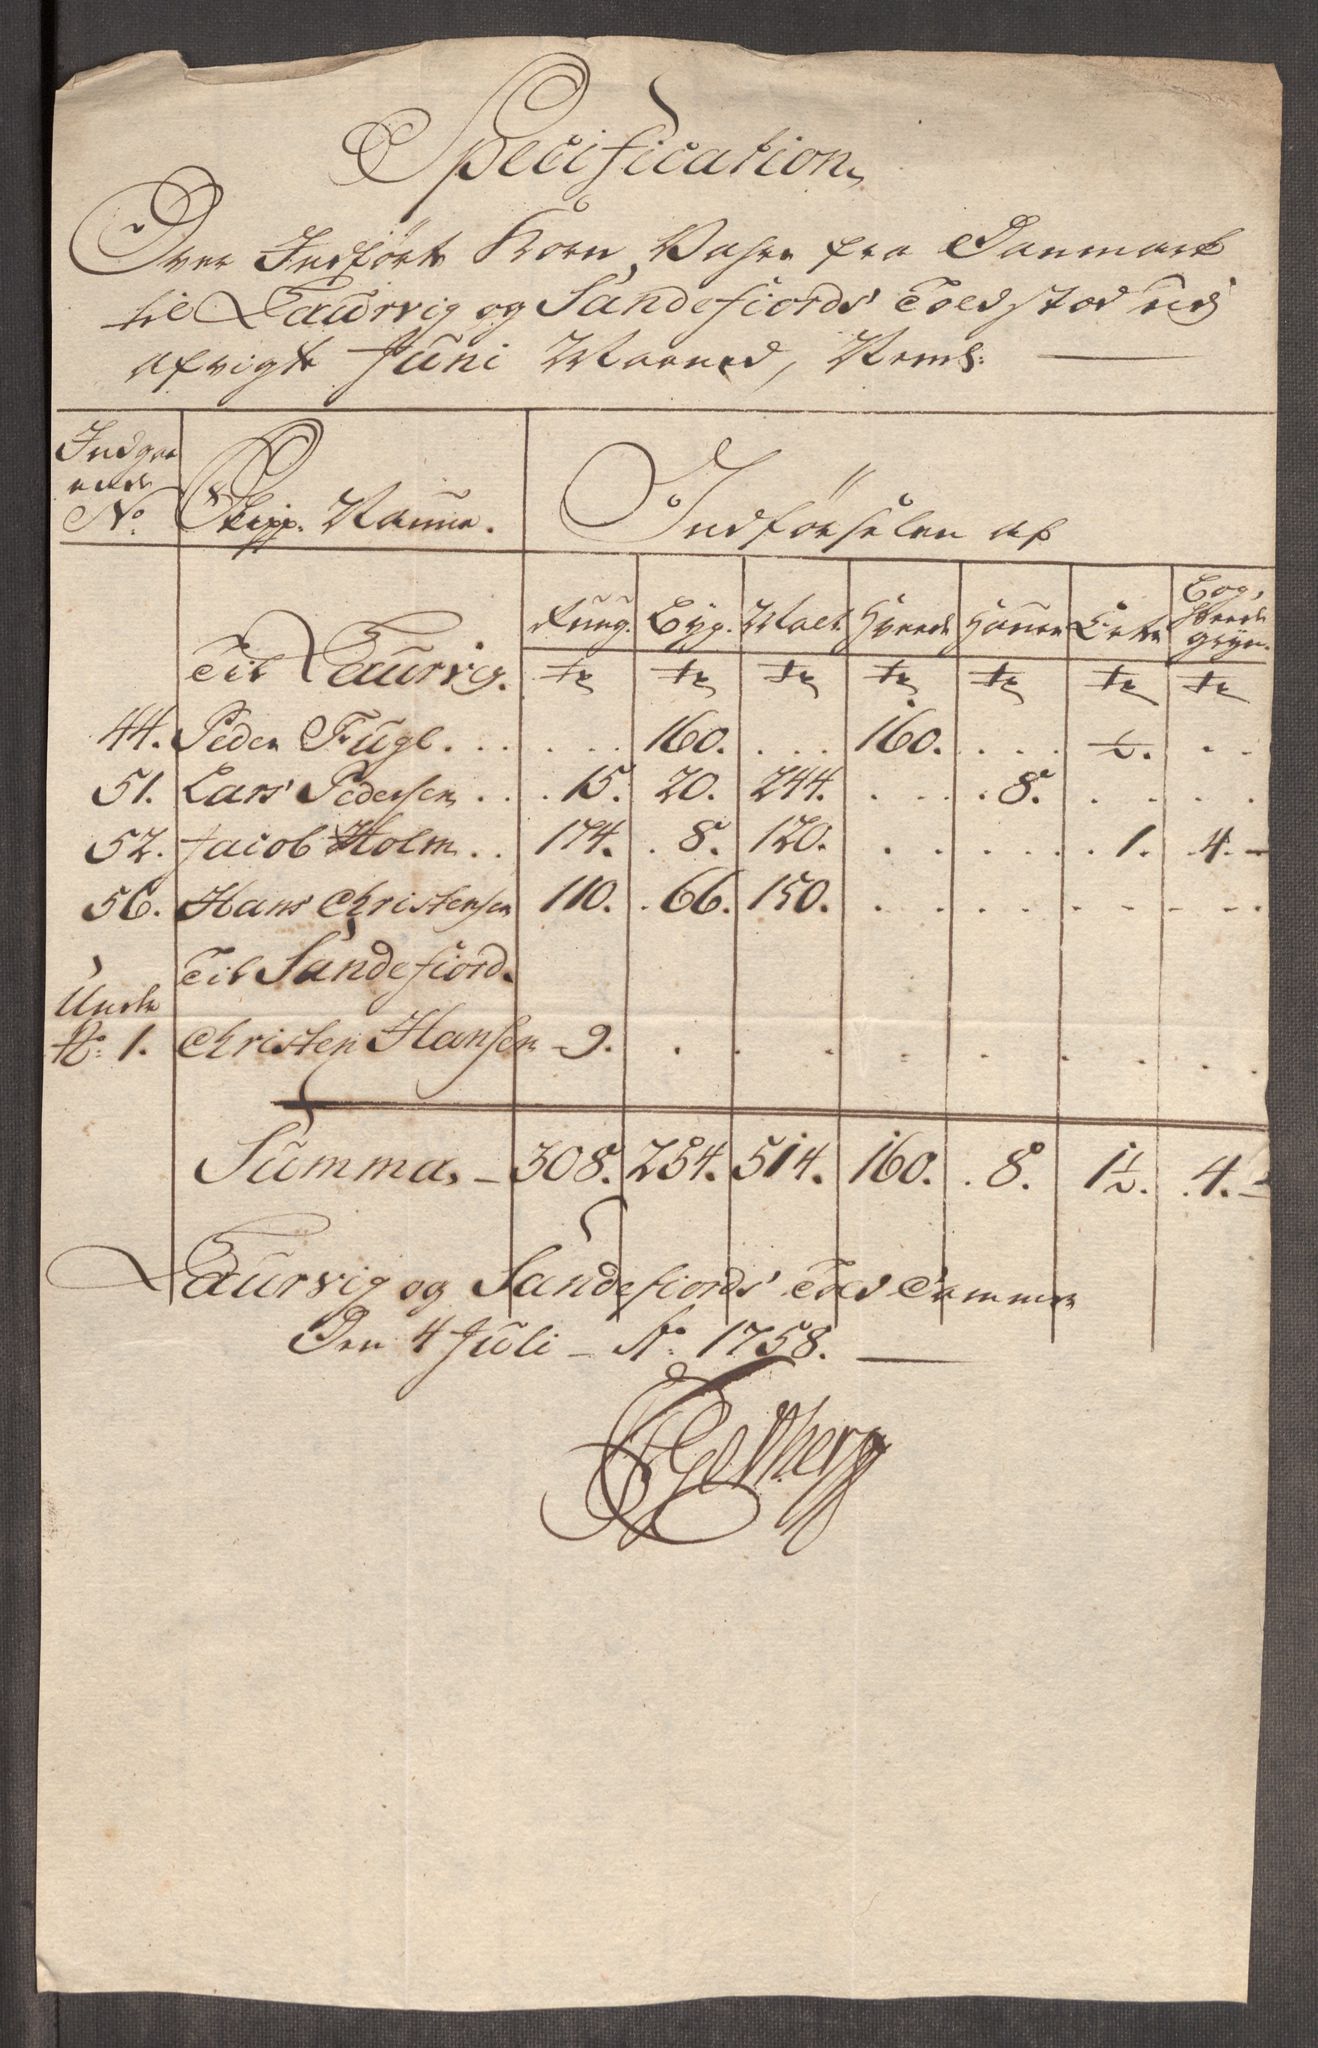 Specification
Over Indført Korn Vahre fra Danmark
til Laurvig og Sandefiords Toldstæd udj
afvigte Juni Maaned, Neml:
Indgaa
ende
No. Skipp. Naune. Indførselen af
Rüug. Byg. Malt Hvede Haure Erter Bog,
Hvede
gryn.
Til Laurvig. Tr Tr Tr Tr Tr Tr Tr
44. Peder Fugl . . . . . . 160. . . . 160. . . . ½. . .
51. Lars Pedersen . . . 15. 20. 244. . . . . 8. . . . .
52. Jacob Holm . . 174. . 8. 120. . . . . . . 1. . 4. -
56. Hans Christensen 110. . 66. 150. . . . . . . . . .
Til Sandefiord.
Under
No: 1. Christen Hansen - 9. . . . . . . . . .
Summa, - 308. 254. 514. 160. . 8. 1½. . 4. -
Laurvig og Sandefiords Told Cammer
Den 4 Juli - Ao. 1758.